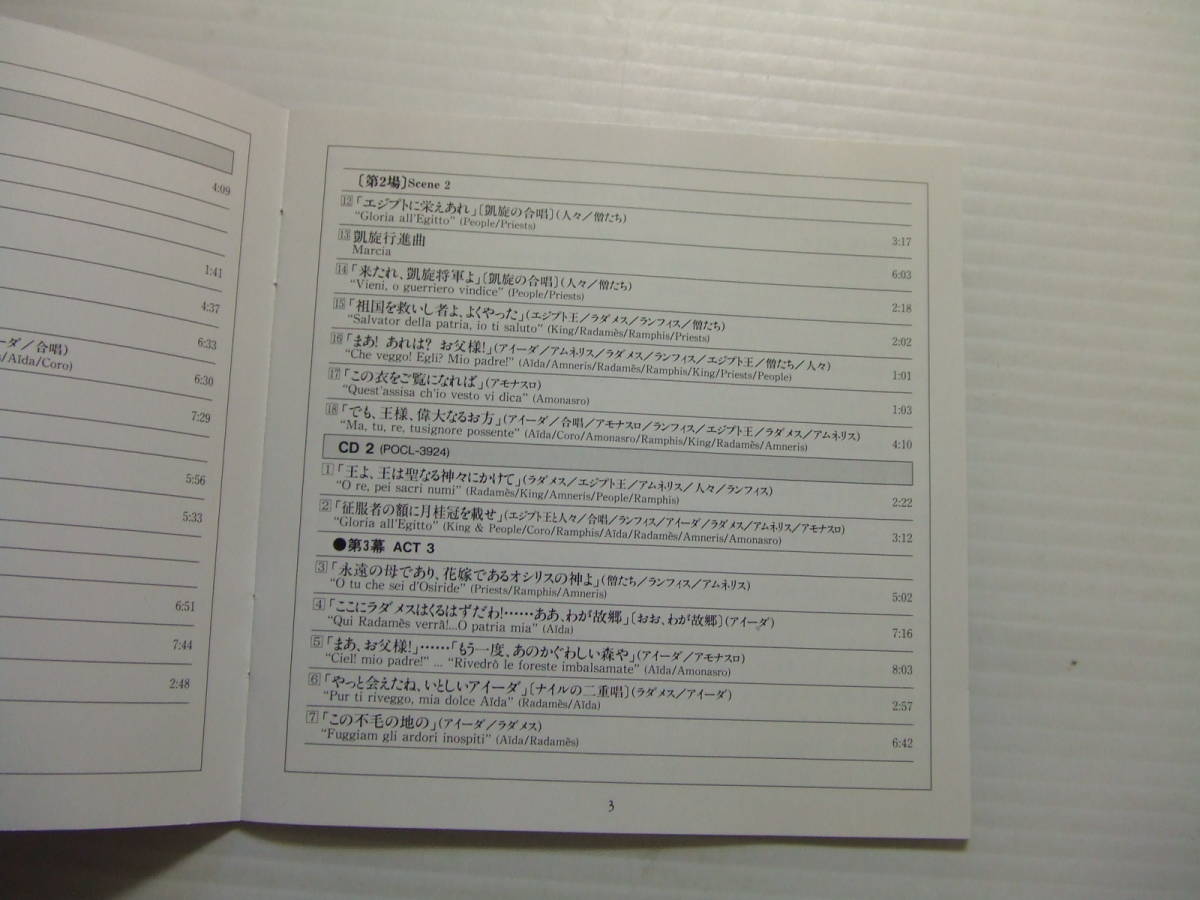 4:09
1:41
4:37
6:33
ーダ／合唱)
s/Aïda/Coro)
6:30
7:29
5:56
5:33
6:51
7:44
2:48
〔第2場〕Scene 2
12「エジプトに栄えあれ」〔凱旋の合唱〕(人々／僧たち)
“Gloria all'Egitto” (People/Priests) 3:17
13 凱旋行進曲
Marcia 6:03
14「来たれ、凱旋将軍よ」〔凱旋の合唱〕(人々／僧たち)
“Vieni, o guerriero vindice” (People/Priests) 2:18
15「祖国を救いし者よ、よくやった」(エジプト王／ラダメス／ランフィス／僧たち)
“Salvator della patria, io ti saluto” (King/Radamès/Ramphis/Priests) 2:02
16「まあ! あれは? お父様!」(アイーダ／アムネリス／ラダメス／ランフィス／エジプト王／僧たち／人々)
“Che veggo! Egli? Mio padre!” (Aïda/Amneris/Radamès/Ramphis/King/Priests/People) 1:01
17「この衣をご覧になれば」(アモナスロ)
“Quest'assisa ch'io vesto vi dica” (Amonasro) 1:03
18「でも、王様、偉大なるお方」(アイーダ／合唱／アモナスロ／ランフィス／エジプト王／ラダメス／アムネリス)
“Ma, tu, re, tusignore possente” (Aïda/Coro/Amonasro/Ramphis/King/Radamès/Amneris) 4:10
CD 2 (POCL-3924)
1「王よ、王は聖なる神々にかけて」(ラダメス／エジプト王／アムネリス／人々／ランフィス)
“O re, pei sacri numi” (Radamès/King/Amneris/People/Ramphis) 2:22
2「征服者の額に月桂冠を載せ」(エジプト王と人々／合唱／ランフィス／アイーダ／ラダメス／アムネリス／アモナスロ)
“Gloria all'Egitto” (King & People/Coro/Ramphis/Aïda/Radamès/Amneris/Amonasro) 3:12
●第3幕 ACT 3
3「永遠の母であり、花嫁であるオシリスの神よ」(僧たち／ランフィス／アムネリス)
“O tu che sei d'Osiride” (Priests/Ramphis/Amneris) 5:02
4「ここにラダメスはくるはずだわ!……ああ、わが故郷」〔おお、わが故郷〕(アイーダ)
“Qui Radamès verrà!...O patria mia” (Aïda) 7:16
5「まあ、お父様!」……「もう一度、あのかぐわしい森や」(アイーダ／アモナスロ)
“Ciel! mio padre!” ... “Rivedrò le foreste imbalsamate” (Aïda/Amonasro) 8:03
6「やっと会えたね、いとしいアイーダ」〔ナイルの二重唱〕(ラダメス／アイーダ)
“Pur ti riveggo, mia dolce Aïda” (Radamès/Aïda) 2:57
7「この不毛の地の」(アイーダ／ラダメス)
“Fuggiam gli ardori inospiti” (Aïda/Radamès) 6:42
3